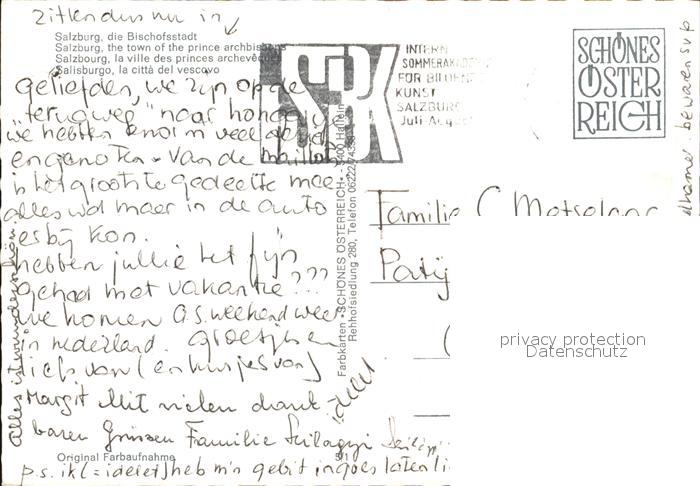 zitten dus nu in
Salzburg, die Bischofsstadt
Salzburg, the town of the prince archbishops
Salzbourg, la ville des princes archevêques
Salisburgo, la città del vescovo
INTERN
SOMMERAKADEMIE
FÜR BILDENDE
KUNST
SALZBURG
Juli-August
SCHÖNES
ÖSTER
REICH
geliefden, we zijn op de
"terugweg" naar
we hebben enorm veel
en genoten. van de
in het grootste gedeelte mee
alles wat maar in de auto
erbij kon.
hebben jullie het fijn
gehad met vakantie???
we komen o.s. weekend weer
in nederland. groetjes en
liefs van (en kusjes van)
Margit Mit vielen dank
baren Grüssen Familie Szilagyi
Alles ist wunderschön.
bewaren svp
Familie C
Patij
Farbkarten - SCHÖNES ÖSTERREICH - 5400 Hallein
Rehhofsiedlung 280, Telefon 06222
privacy protection
Datenschutz
Original Farbaufnahme
p.s. ik (= ) heb m'n gebit in goes laten li